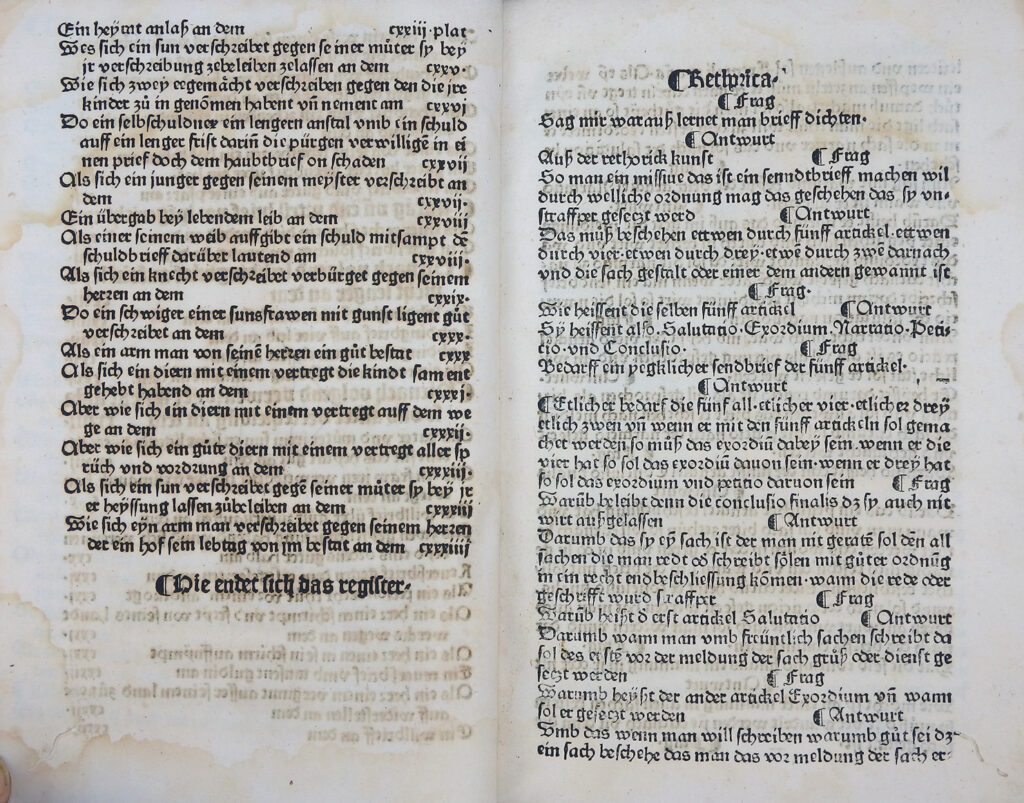 Ein heyrat anlaß an dem cxxiij·plat
Wes sich ein sun verschreibet gegen seiner můter sy bey
jr verschreibung zebeleiben zelassen an dem cxxv·
Wie sich zwey eegemächt verschreiben gegen den die jre
kinder zů in genōmen habent vn̄ nement am cxxvj
Do ein selbschuldner ein lengern anstal vmb ein schuld
auff ein lenger frist darin̄ die pürgen verwilligē in ei
nen prief doch dem haubtbrief on schaden cxxvij
Als sich ein junger gegen seinem meyster verschreibt an
dem cxxvij·
Ein übergab bey lebendem leib an dem cxxviij
Als einer seinem weib auffgibt ein schuld mitsampt dē
schuldbrieff darüber lautend am cxxviij·
Als sich ein knecht verschreibet verbürget gegen seinem
herren an dem cxxix·
Do ein schwiger einer sunsfrawen mit gunst ligent gůt
verschreibet an dem cxxx·
Als ein arm man von seinē herren ein gůt bestat cxxx
Als sich ein diern mit einem vertregt die kindt sam ent
gehebt habend an dem cxxxj·
Aber wie sich ein diern mit einem vertregt auff dem we
ge an dem cxxxij·
Aber wie sich ein gůte diern mit einem vertregt aller sp
rüch vnd vordrung an dem cxxxiij·
Als sich ein sun verschreibet gegē seiner můter sy bey jr
er heyssung lassen zůbeleiben an dem cxxxiij
Wie sich eyn arm man verschreibet gegen seinem herren
der ein hof sein lebtag von jm bestat an dem cxxxiiij
¶Hie endet sich das register·
¶Rethorica·
¶Frag
Sag mir warauß lernet man brieff dichten·
¶Antwurt
Auß der rethorick kunst ¶Frag
So man ein missiue das ist ein senndtbrieff machen wil
durch welliche ordnung mag das geschehen das sy vn-
straffper gesetzt werd ¶Antwurt
Das můß beschehen ettwen durch fünff artickel·ettwen
durch vier·etwen durch drey·etwē durch zwē darnach
vnd die sach gestalt oder einer dem andern gewannt ist
¶Frag·
Wie heissent die selben fünff artickel ¶Antwurt
Sy heissent also·Salutatio·Exordium·Narratio·Peti-
tio·vnd Conclusio· ¶Frag
Bedarff ein yegklicher sendbrief der fünff artickel·
¶Antwurt
¶Etlicher bedarf die fünf all·etlicher vier·etlicher drey
etlich zwen vn̄ wenn er mit den fünff artickeln sol gema
chet werden so můß das exordiū dabey sein·wenn er die
vier hat so sol das exordiū dauon sein·wenn er drey hat
so sol das exordium vnd petitio daruon sein ¶Frag
Warūb beleibt denn die conclusio finalis dz sy auch nit
wirt außgelassen ¶Antwurt
Darumb das sy eȳ sach ist der man nit geratē sol den all
sachen die man redt od̄ schreibt sölen mit gůter ordnūg
in ein recht endbeschliessung kōmen·wann die rede oder
geschrifft wurd straffper ¶Frag
Warūb heißt d̄ erst artickel Salutatio ¶Antwurt
Darumb wann man vmb freüntlich sachen schreibt da
sol des erstē vor der meldung der sach grůß oder dienst ge
setzt werden ¶Frag
Warumb heyßt der ander artickel Exordium vn̄ wann
sol er gesetzt werden ¶Antwurt
Vmb das wenn man will schreiben warumb gůt sei dz
ein sach beschehe das man das vor meldung der sach er-